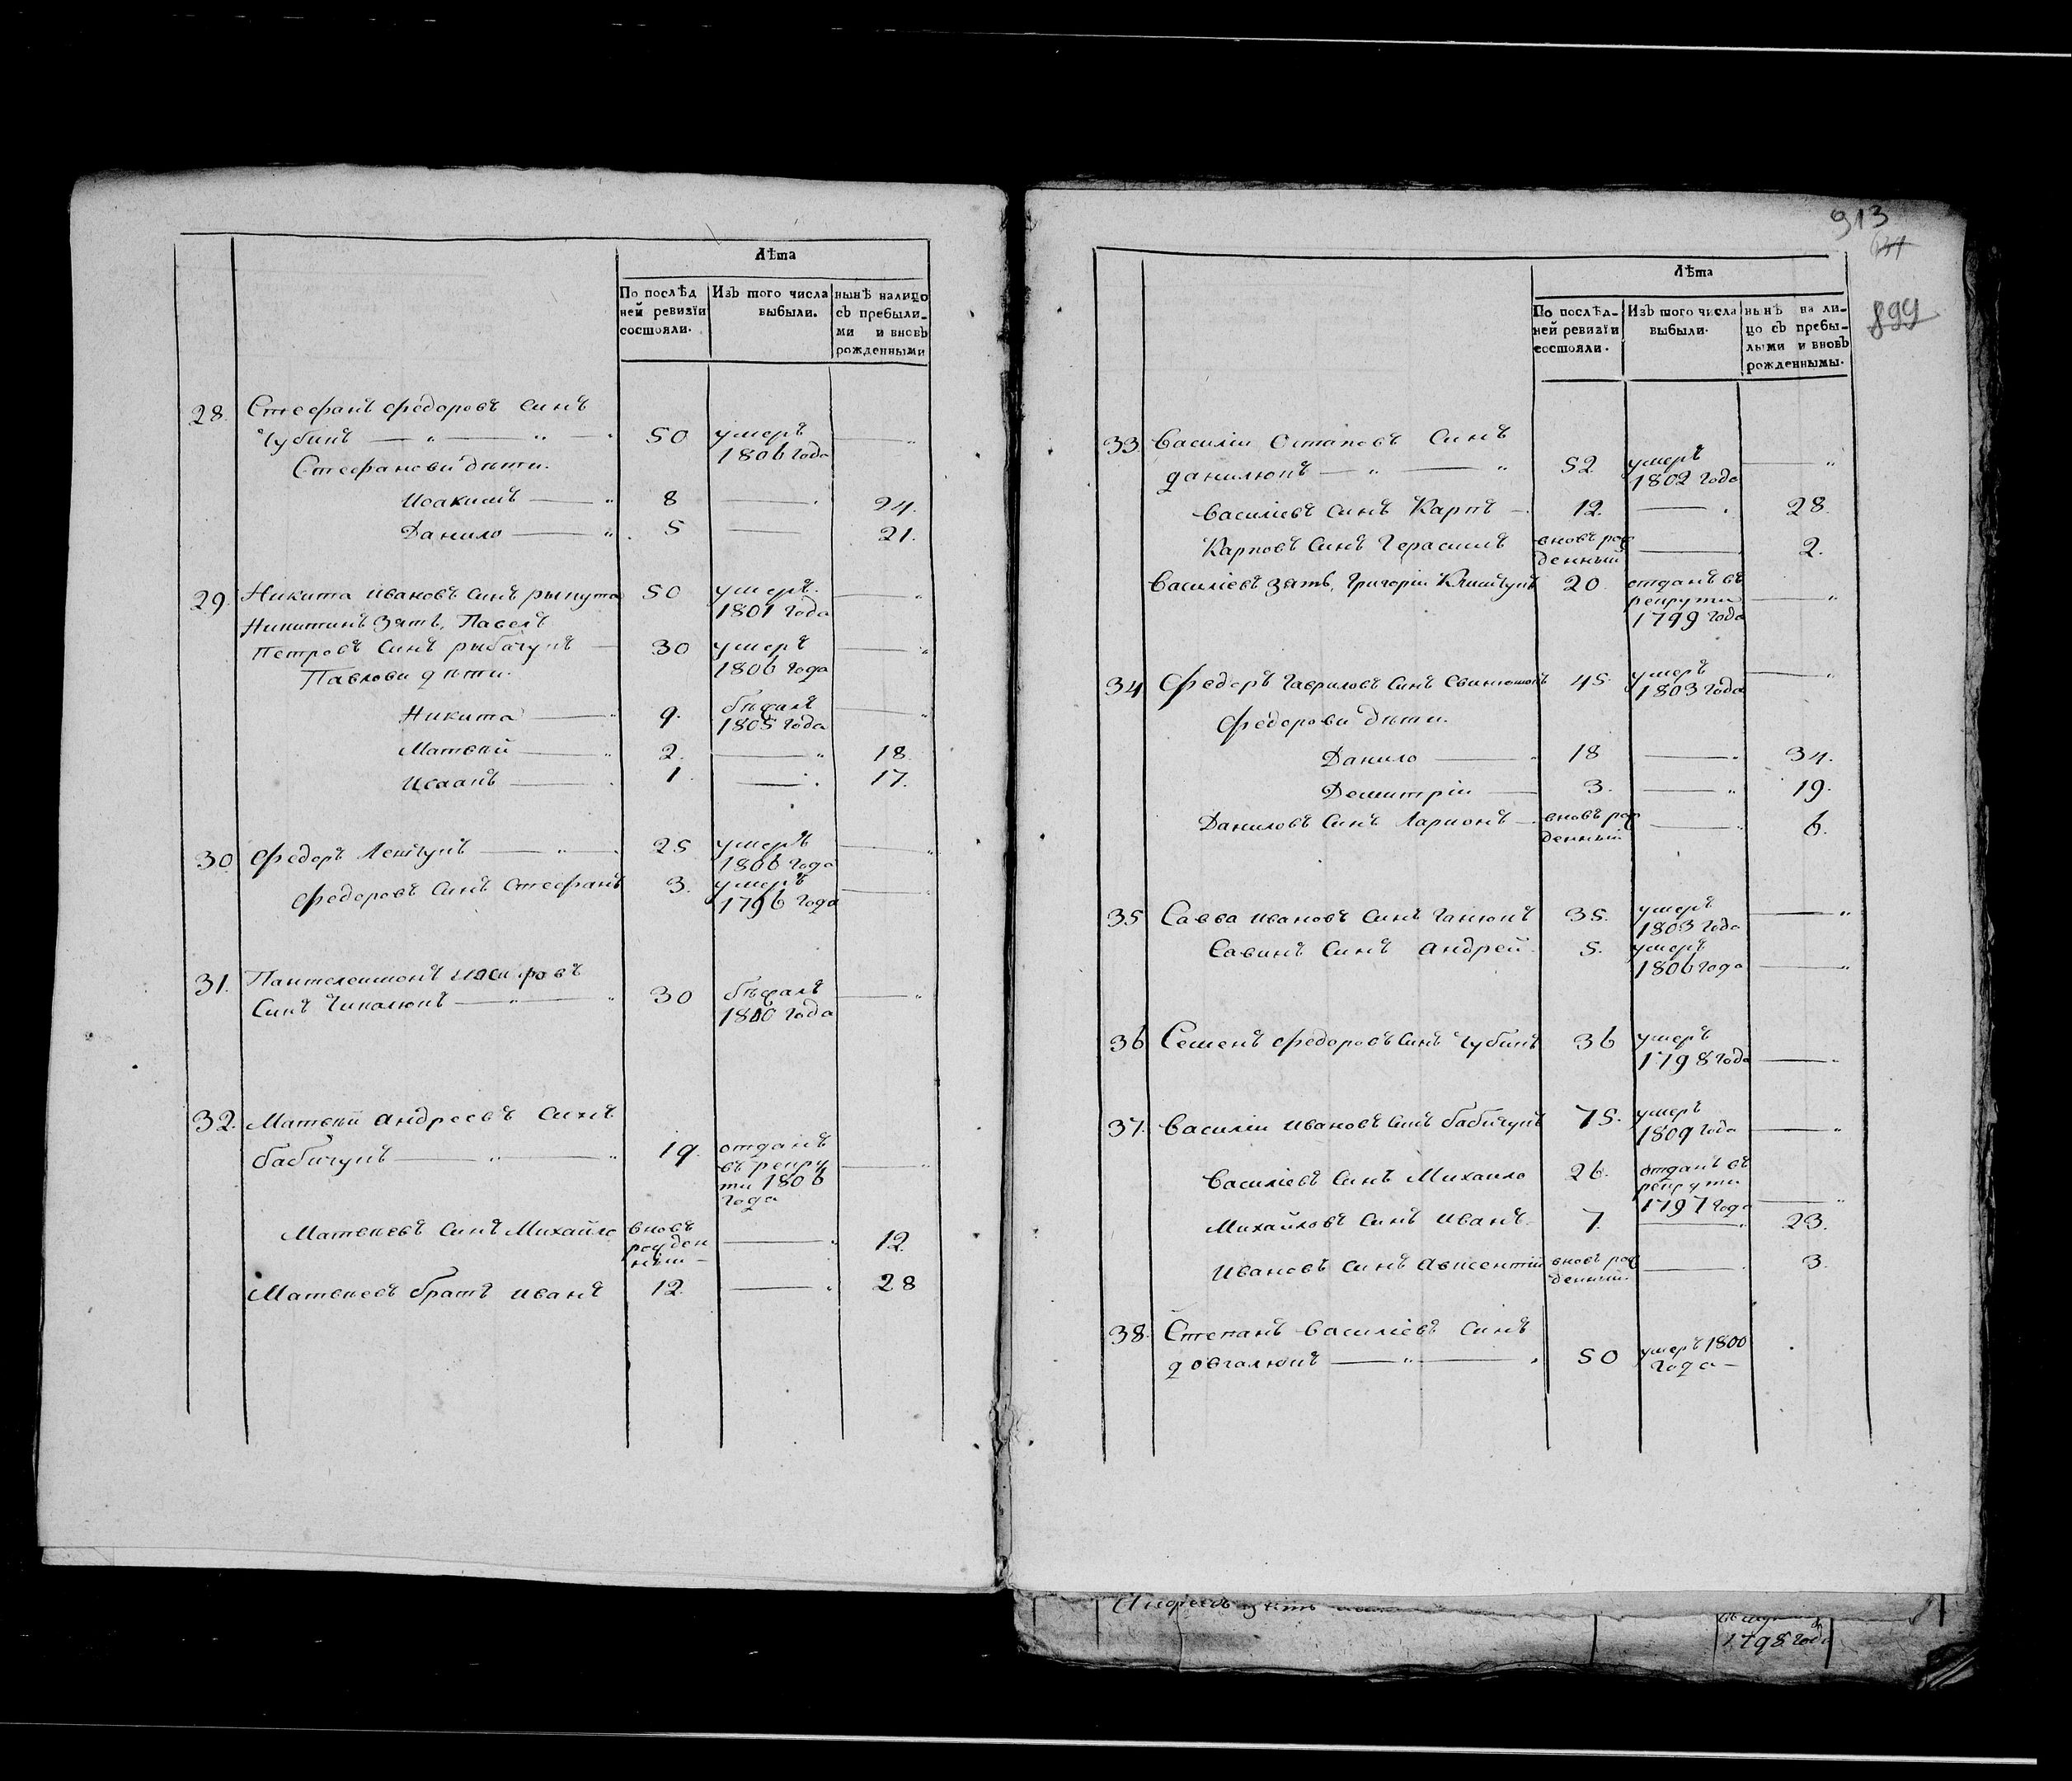 Лѣта
По послѣд
ней ревизїи
состояли.
Изъ того числа
выбыли.
нынѣ налицо
съ пребыли-
ми и вновь
рожденными
28. Стефанъ Федоровъ синъ
Чубикъ 50 умеръ
1806 года
Стефанови дѣти.
Иоакимъ 8 24.
Данило 5 21.
29. Никита Ивановъ синъ 50 умеръ
1801 года
Никитинъ зять, Павелъ
Петровъ синъ рыбачукъ 30 умеръ
1806 года
Павлови дѣти.
Никита 9. бѣжалъ
1805 года
Матвей 2. 18.
Исаакъ 1 17.
30. Федоръ Левчукъ 25 умеръ
1806 года
Федоровъ синъ Стефанъ 3. умеръ
1796 года
31. Пантелеимонъ
Синъ Чикалюкъ 30 бѣжалъ
1800 года
32. Матвей Андреевъ синъ
Бабичукъ 19. отданъ
въ рекру
ти 1806
года
Матвеевъ синъ Михайло вновь
рожден
ный 12.
Матвеевъ братъ Иванъ 12. 28
913
899
Лѣта
По послѣд-
ней ревизїи
состояли.
Изъ того числа
выбыли.
нынѣ на ли-
цо съ пребы-
лыми и вновь
рожденнымы.
33. Василий Остаповъ синъ
Данилюкъ 52 умеръ
1802 года
Василіевъ синъ Карпъ 12. 28.
Карповъ синъ Герасимъ вновь рож
денный 2.
Василіевъ зять, Григорій Климчукъ 20. отданъ въ
рекрути
1799 года
34. Федоръ Гавриловъ синъ 45. умеръ
1803 года
Федорови дѣти.
Данило 18 34.
Демитрій 3. 19.
Даниловъ синъ Ларионъ вновь рож
денный 6.
35 Савва Ивановъ синъ Ганюкъ 35. умеръ
1803 года
Савинъ синъ Андрей 5. умеръ
1806 года
36 Семенъ Федоровъ синъ Чубикъ 36 умеръ
1798 года
37. Василій Ивановъ синъ Бабичукъ 75. умеръ
1809 года
Василіевъ синъ Михаило 26. отданъ въ
рекрути
1797 года
Михайловъ синъ Иванъ. 7. 23.
Ивановъ синъ Авксентий вновь рож
денный 3.
38. Степанъ Василіевъ синъ
Довгалюкъ 50 умеръ 1800
года
зять
1798 года